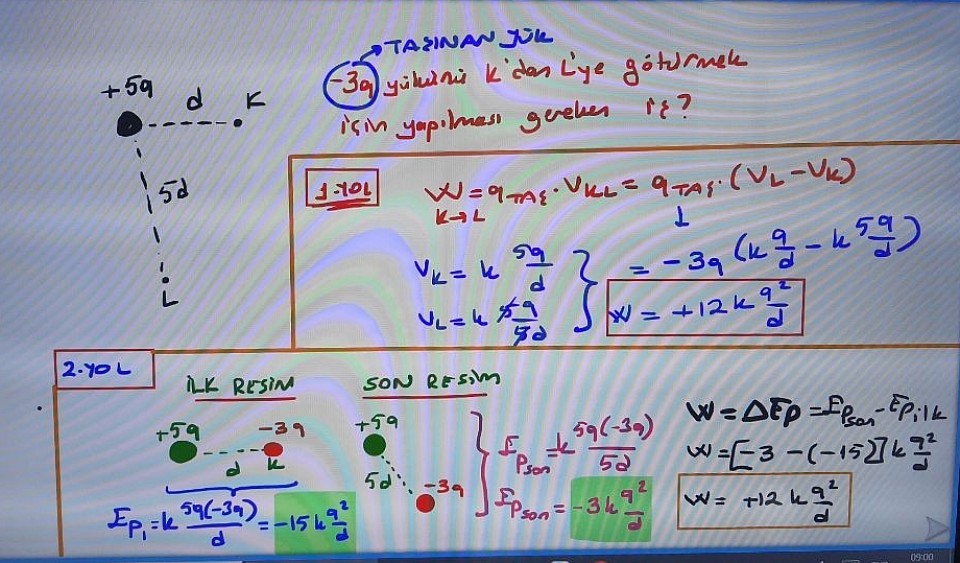 +5q
d
K
5d
L
TAŞINAN YÜK
-3q yükünü K'dan L'ye götürmek
için yapılması gereken iş?
1.YOL
W = qTAŞ . VKL = qTAŞ . (VL - VK)
K→L
VK = k 5q/d
VL = k 5q/5d
= -3q (k q/d - k 5q/d)
W = +12 k q²/d
2.YOL
İLK RESİM
+5q
-3q
d
K
Ep₁ = k 5q(-3q)/d = -15 k q²/d
SON RESİM
+5q
5d
-3q
Epson = k 5q(-3q)/5d
Epson = -3k q²/d
W = ΔEp = Epson - Epilk
W = [-3 - (-15)] k q²/d
W = +12 k q²/d
09:00